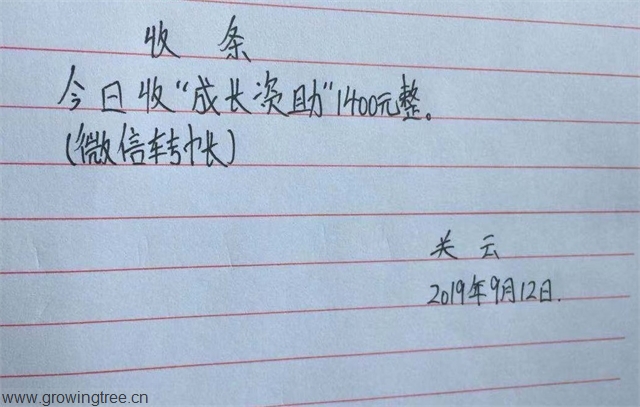 收 条
今日收“成长资助”1400元整。
(微信转帐)
关云
2019年9月12日.
www.growingtree.cn